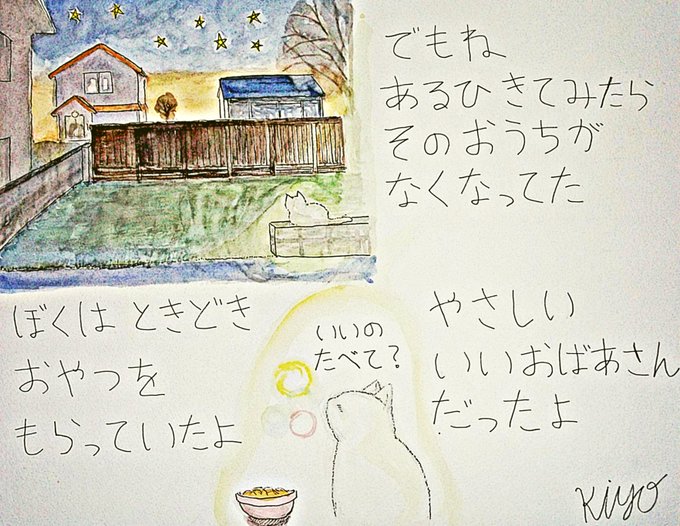 でもね
あるひ きてみたら
そのおうちが
なくなってた
ぼくは ときどき
おやつを
もらっていたよ
いいの
たべて？
やさしい
いいおばあさん
だったよ
Kiyo